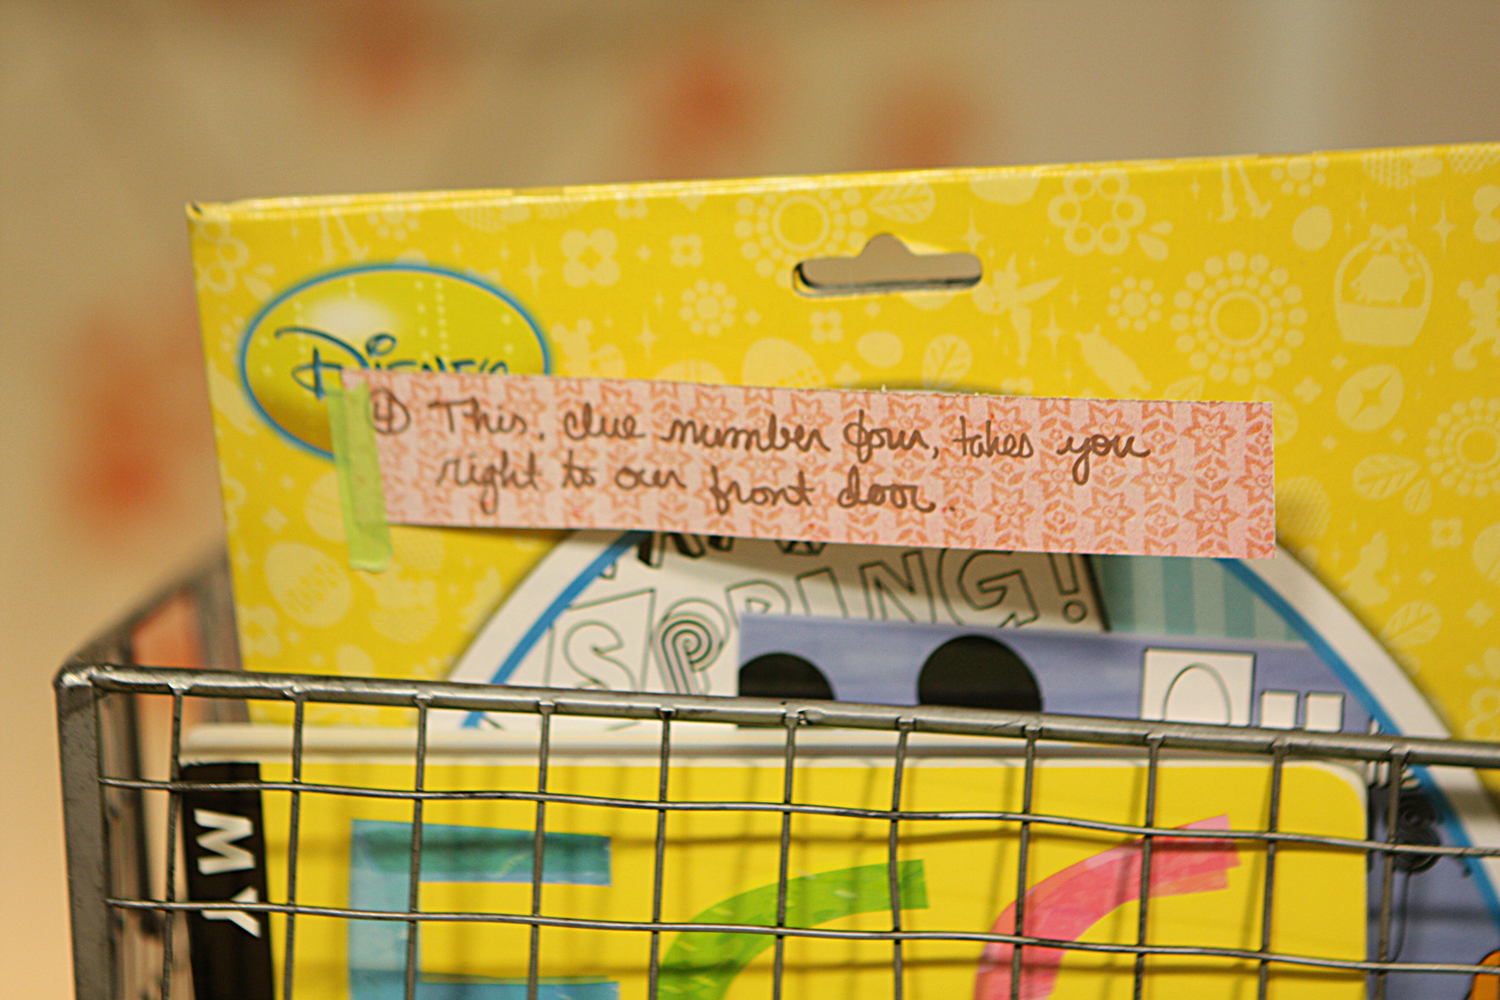 Disney
④ This, clue number four, takes you
right to our front door..
SPRING!
MY